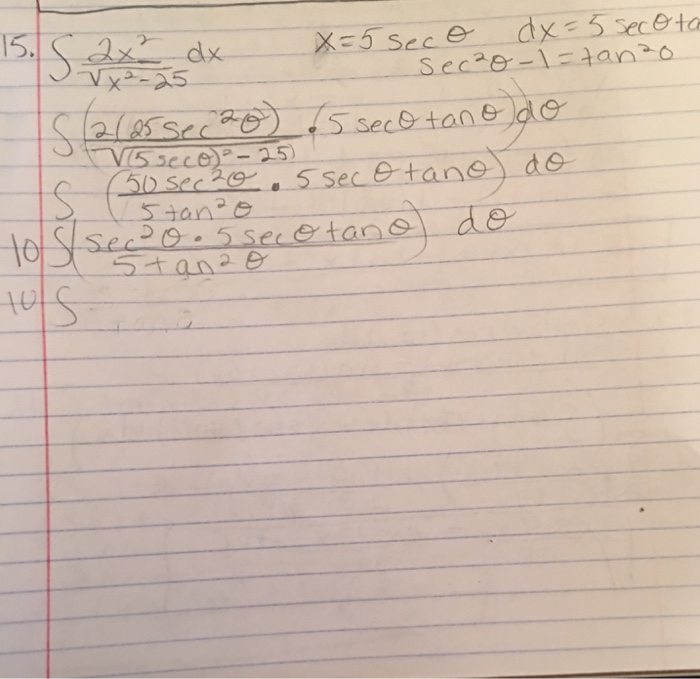 15. ∫ 2x² / √x²-25 dx x=5 sec θ dx = 5 secθ ta
sec²θ - 1 = tan²θ
∫ (2(25 sec²θ) / √(5 secθ)² - 25) · 5 secθ tanθ) dθ
∫ (50 sec²θ / 5 tan²θ · 5 sec θ tanθ) dθ
10 ∫ (sec²θ · 5 secθ tanθ / 5 tan²θ) dθ
10 ∫